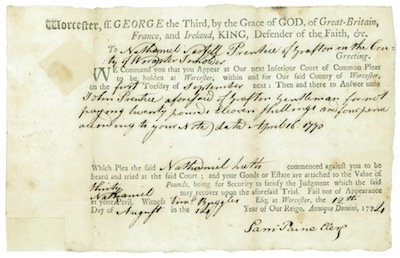 Worcester, ss. GEORGE the Third, by the Grace of GOD, of Great-Britain,
France, and Ireland, KING, Defender of the Faith, &c.
To Nathaniel Prentice of Grafton in the Coun-
ty of Worcester Greeting.
WE Command you that you Appear at Our next Inferiour Court of Common Pleas
to be holden at Worcester, within and for Our said County of Worcester,
on the first Tuesday of September next: Then and there to Answer unto
John Prentice aforesaid of Grafton Gentleman for not
paying twenty pounds eleven shillings and four pence
according to your Note dated April 16 1770
Which Plea the said Nathaniel hath commenced against you to be
heard and tried at the said Court; and your Goods or Estate are attached to the Value of
thirty Pounds, being for Security to satisfy the Judgment which the said
Nathaniel may recover upon the aforesaid Trial. Fail not of Appearance
at your Peril. Witness Timo Ruggles Esq; at Worcester, the 12th
Day of August in the 14th Year of Our Reign, Annoque Domini, 1774
Saml Paine Cler